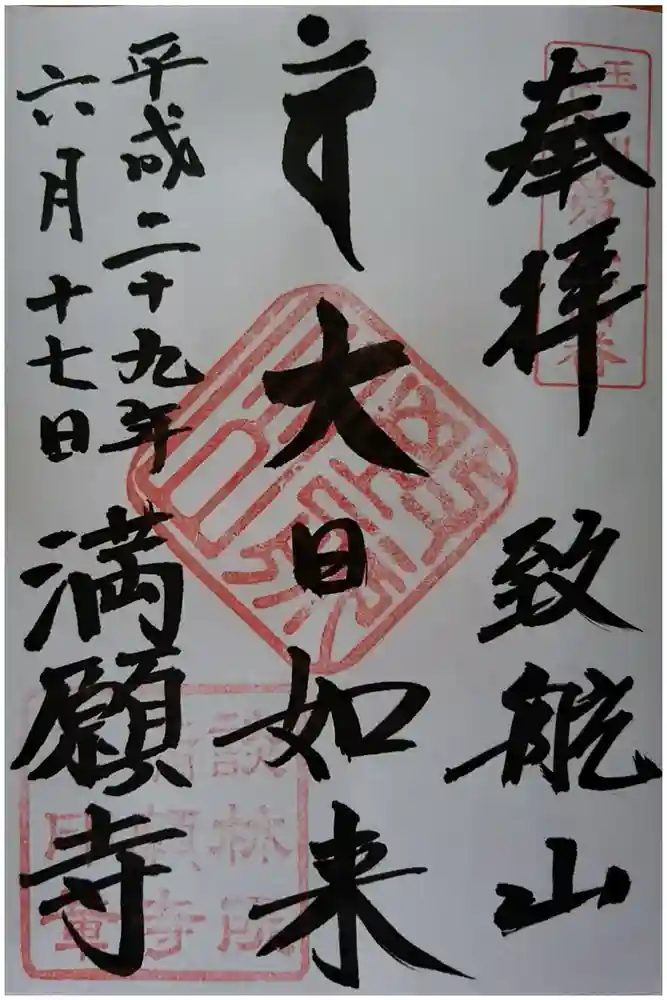 奉拝 致航山
大日如来
平成二十九年
六月十七日
満願寺
談林所
満願寺
印章